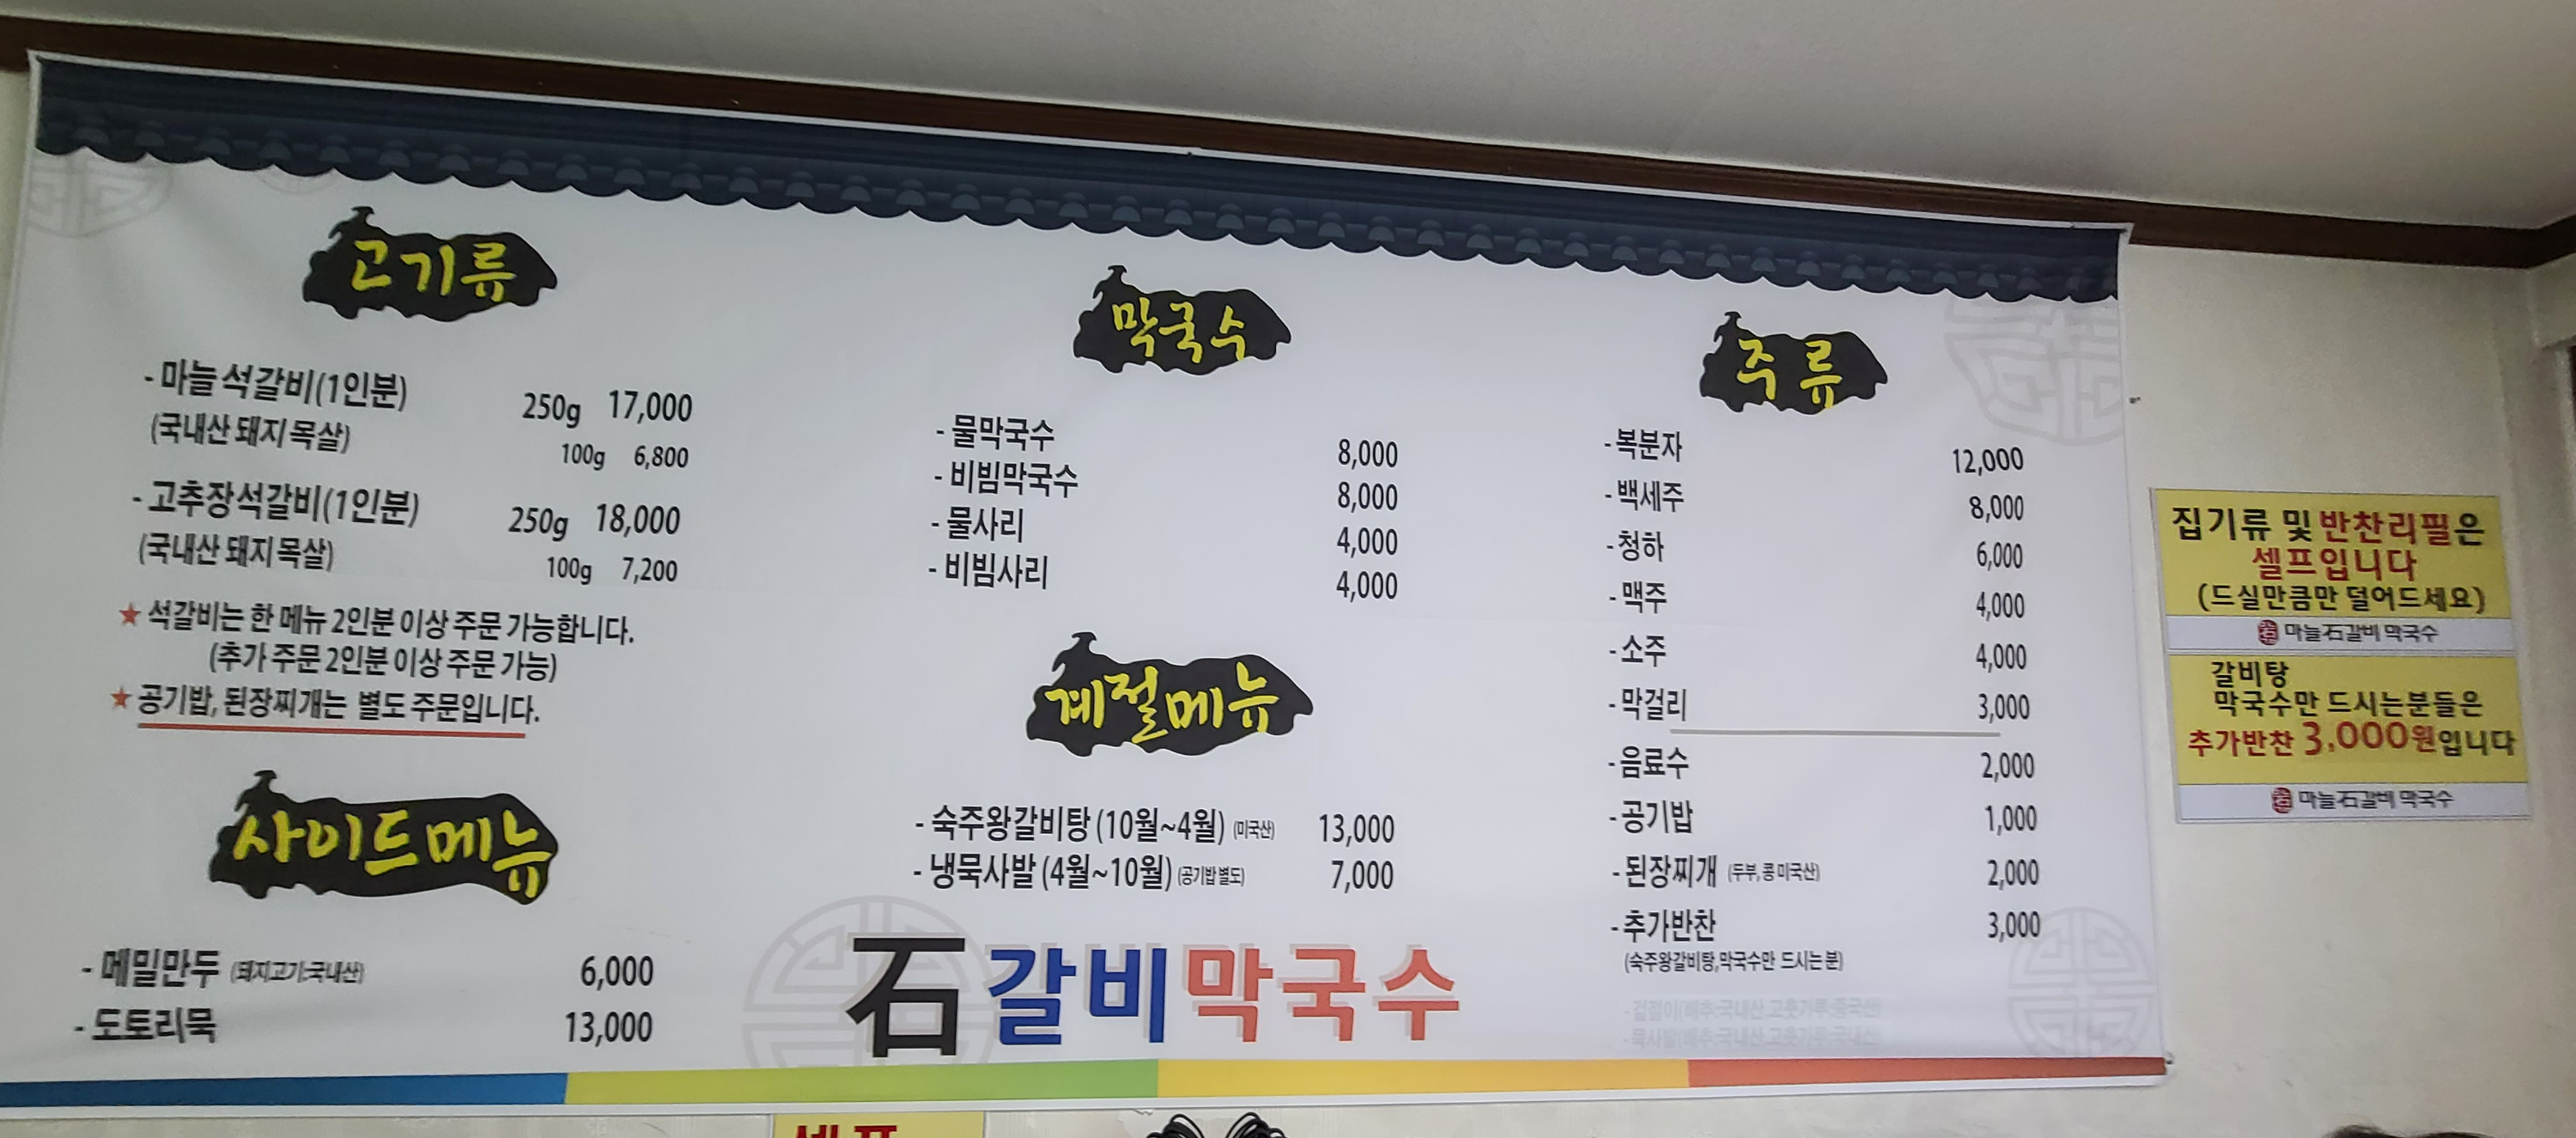 고기류
- 마늘석갈비(1인분) 250g 17,000
(국내산 돼지 목살) 100g 6,800
- 고추장석갈비(1인분) 250g 18,000
(국내산 돼지 목살) 100g 7,200
★ 석갈비는 한 메뉴 2인분 이상 주문 가능합니다.
(추가 주문 2인분 이상 주문 가능)
★ 공기밥, 된장찌개는 별도 주문입니다.
사이드메뉴
- 메밀만두 (돼지고기:국내산) 6,000
- 도토리묵 13,000
막국수
- 물막국수 8,000
- 비빔막국수 8,000
- 물사리 4,000
- 비빔사리 4,000
계절메뉴
- 숙주왕갈비탕 (10월~4월) (미국산) 13,000
- 냉묵사발 (4월~10월) (공기밥 별도) 7,000
石갈비막국수
주류
- 복분자 12,000
- 백세주 8,000
- 청하 6,000
- 맥주 4,000
- 소주 4,000
- 막걸리 3,000
- 음료수 2,000
- 공기밥 1,000
- 된장찌개 (두부, 콩 미국산) 2,000
- 추가반찬 3,000
(숙주왕갈비탕,막국수만 드시는 분)
- 겉절이(배추:국내산,고춧가루:중국산)
- 묵사발(배추:국내산,고춧가루:국내산)
집기류 및 반찬리필은
셀프입니다
(드실만큼만 덜어드세요)
마늘石갈비 막국수
갈비탕
막국수만 드시는분들은
추가반찬 3,000원입니다
마늘石갈비 막국수
셀프